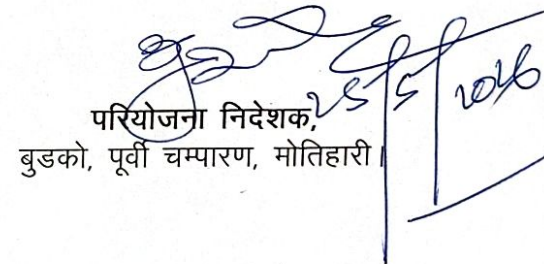 25/5/2026
परियोजना निदेशक,
बुडको, पूर्वी चम्पारण, मोतिहारी।